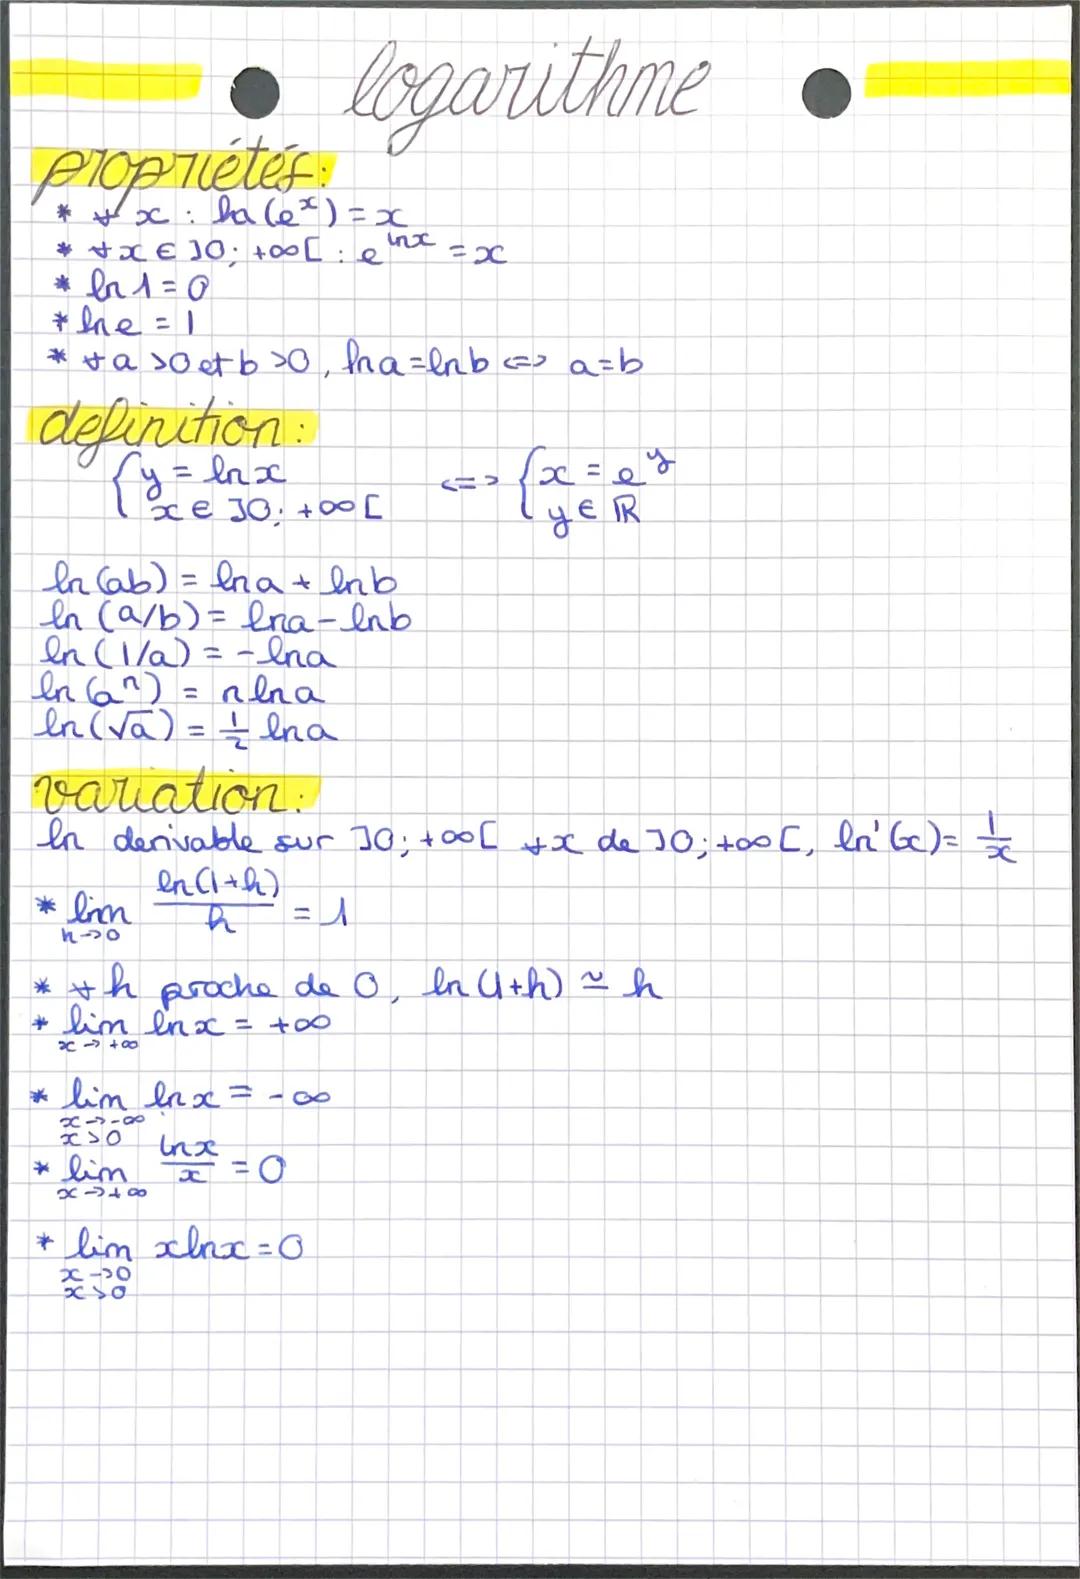 logarithme
propriétés:
* ∀ x : ln(eˣ) = x
* ∀x ∈ ]0; +∞[ : e^lnx = x
* ln 1 = 0
* ln e = 1
* ∀a >0 et b >0, ln a = ln b <=> a=b
definition:
{ y = ln x <=> { x = e^y
x ∈ ]0; +∞[ y ∈ ℝ
ln(ab) = lna + lnb
ln (a/b) = lna - lnb
ln (1/a) = - lna
ln (aⁿ) = n ln a
ln(√a) = 1/2 ln a
variation:
ln derivable sur ]0; +∞[ ∀x de ]0; +∞[, ln'(x) = 1/x
* lim h→0 ln(1+h)/h = 1
* ∀h proche de 0, ln(1+h) ≃ h
* lim x→+∞ ln x = +∞
* lim x→-∞ x>0 ln x = -∞
* lim x→+∞ lnx/x = 0
* lim x→0 x>0 xlnx = 0